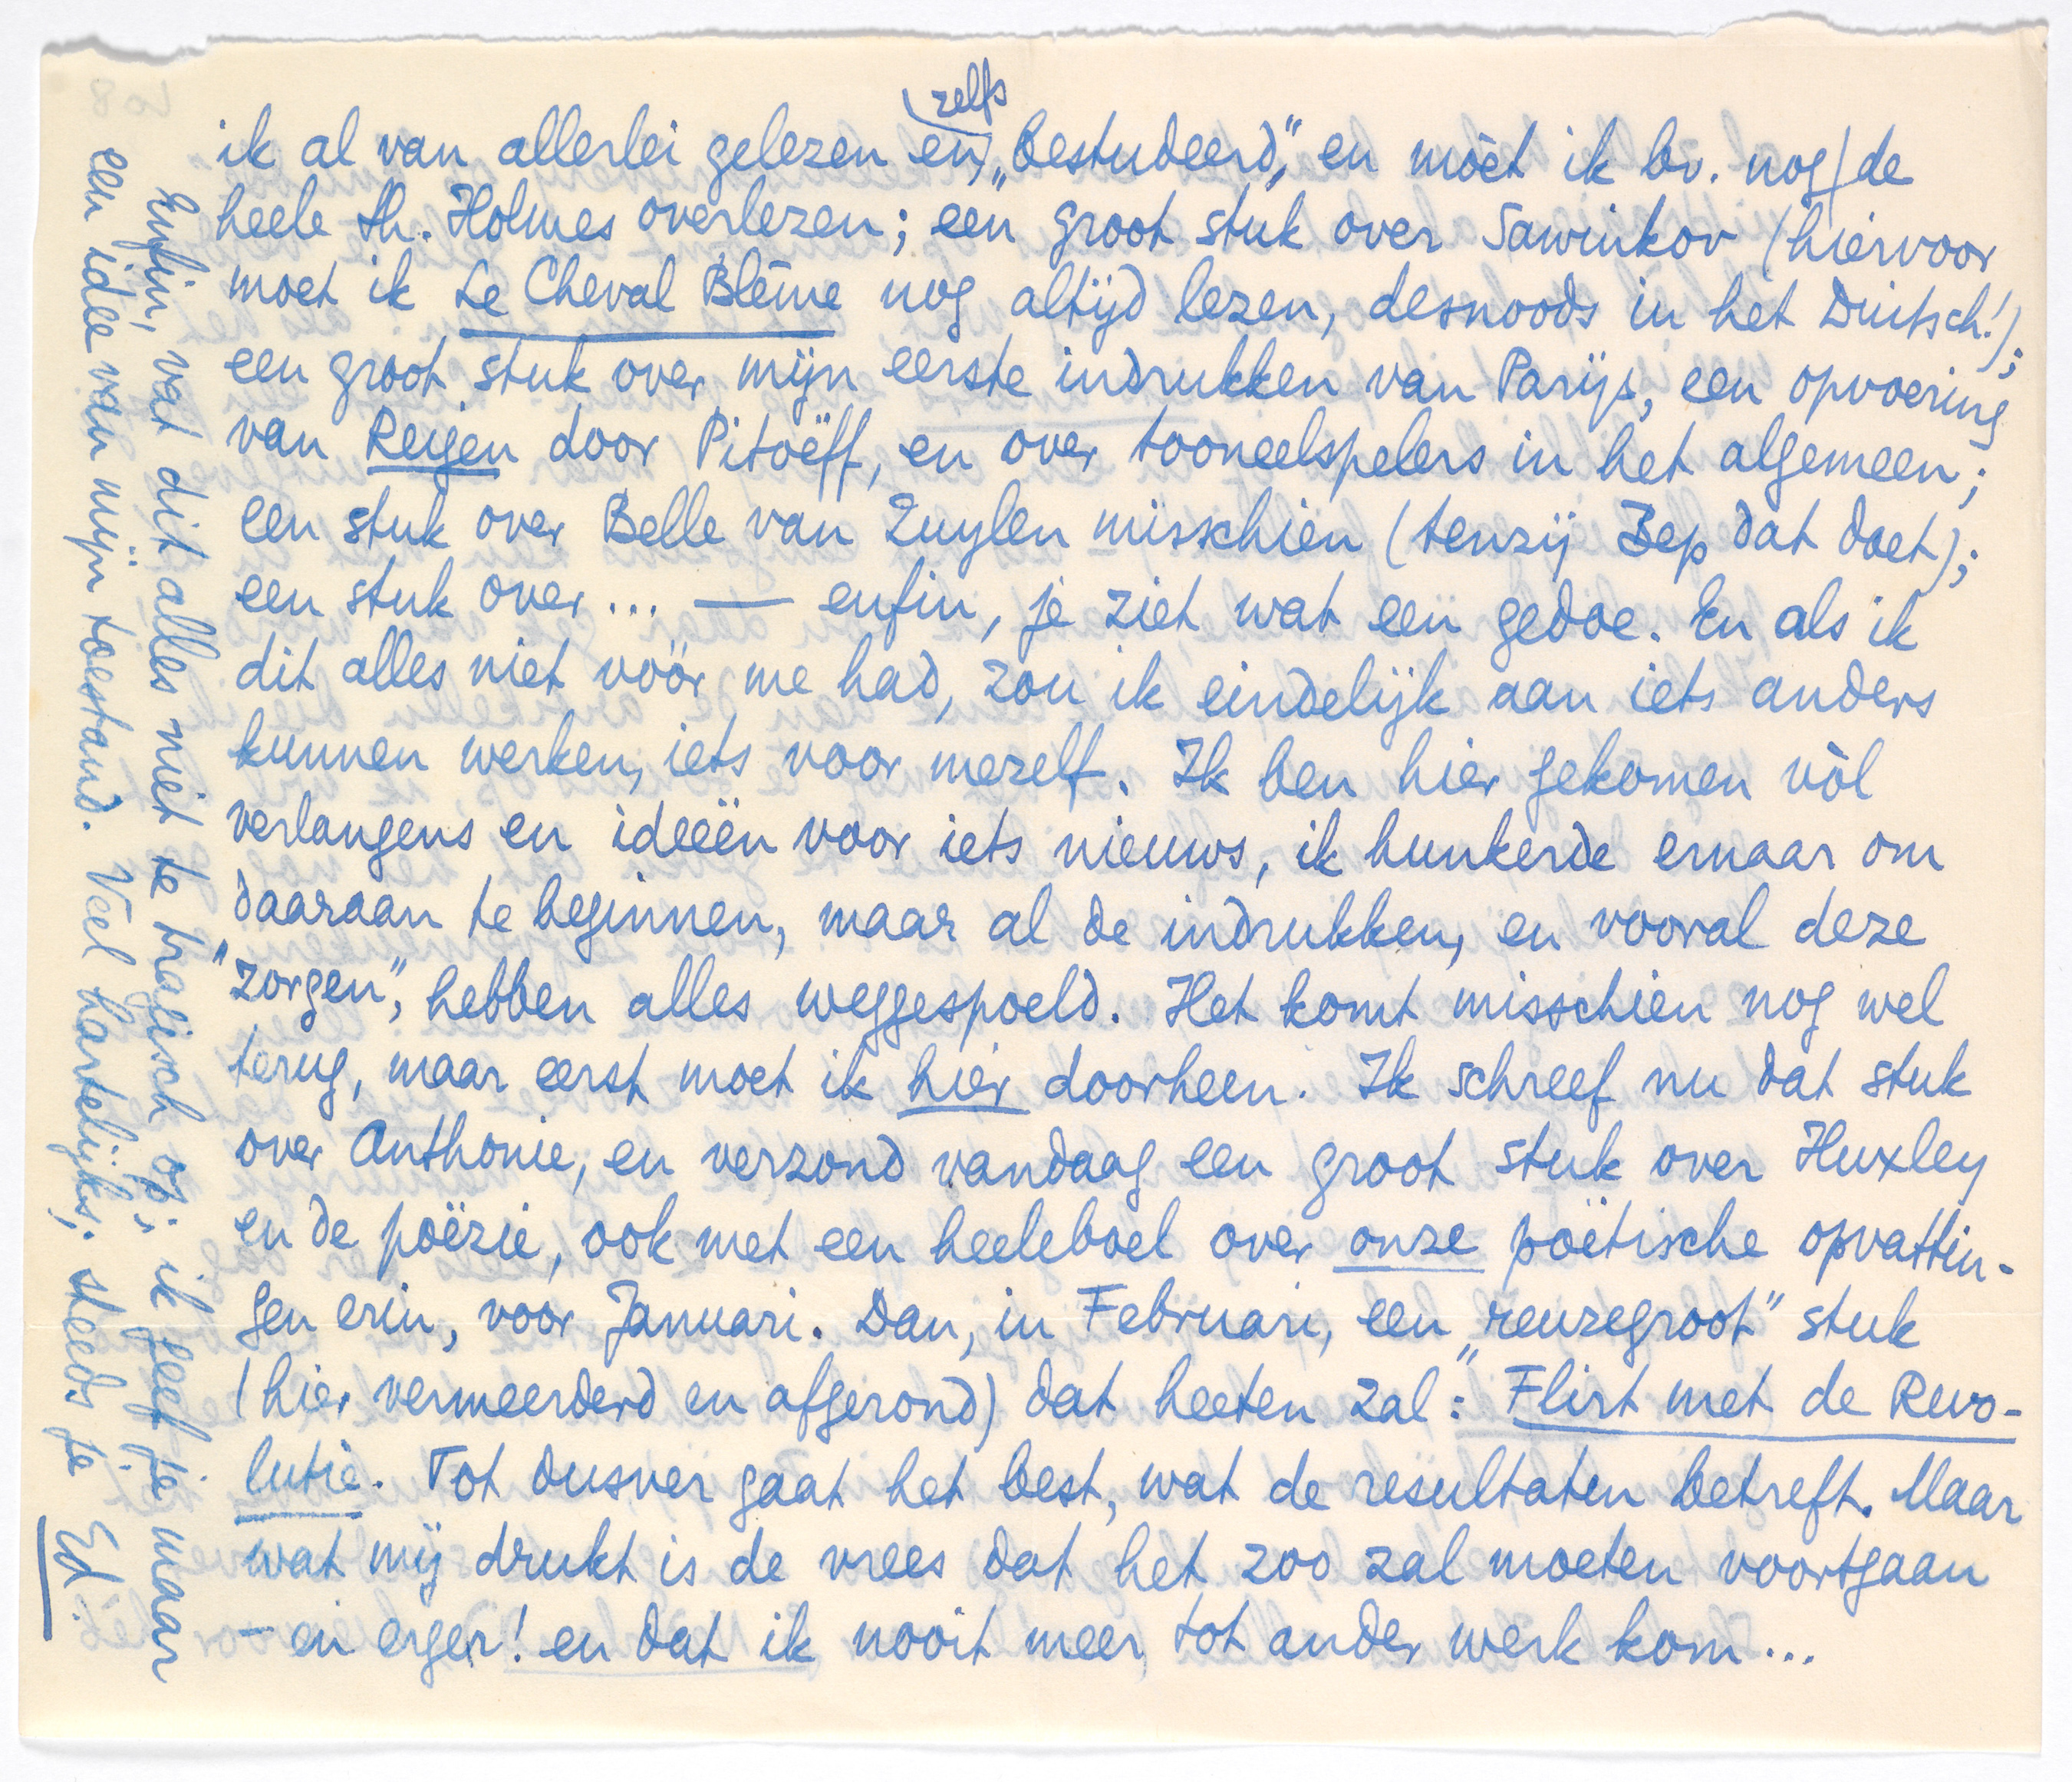 ik al van allerlei gelezen en zelfs „bestudeerd", en mòet ik bv. nog de
heele Sh. Holmes overlezen; een groot stuk over Sawinkov (hiervoor
moet ik Le Cheval Blême nog altijd lezen, desnoods in het Duitsch!);
een groot stuk over mijn eerste indrukken van Parijs, een opvoering
van Reigen door Pitoëff, en over tooneelspelers in het algemeen;
een stuk over Belle van Zuylen misschien (tenzij Bep dat doet);
een stuk over ... — enfin, je ziet wat een gedoe. En als ik
dit alles niet vóór me had, zou ik eindelijk aan iets anders
kunnen werken, iets voor mezelf. Ik ben hier gekomen vòl
verlangens en ideeën voor iets nieuws, ik hunkerde ernaar om
daaraan te beginnen, maar al de indrukken, en vooral deze
"zorgen", hebben alles weggespoeld. Het komt misschien nog wel
terug, maar eerst moet ik hier doorheen. Ik schreef nu dat stuk
over Anthonie, en verzond vandaag een groot stuk over Huxley
en de poëzie, ook met een heeleboel over onze poëtische opvattin-
gen erin, voor Januari. Dan, in Februari, een „reuzegroot" stuk
(hier vermeerderd en afgerond) dat heeten zal: Flirt met de Revo-
lutie. Tot dusver gaat het best, wat de resultaten betreft. Maar
wat mij drukt is de vrees dat het zoo zal moeten voortgaan
— en erger! en dat ik nooit meer tot ander werk kom...
Enfin, vat dit alles niet te tralisch op; ik geef je maar
een idee van mijn toestand. Veel hartelijks, steeds je Ed.